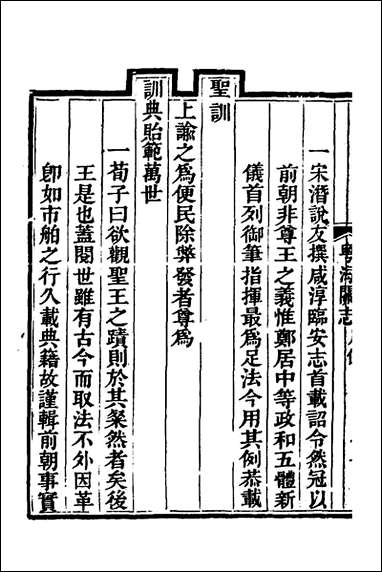 粤海關志
一宋潛說友撰咸淳臨安志首載詔令然冠以
前朝非尊王之義惟鄭居中等政和五體新
儀首列御筆指揮最爲足法今用其例恭載
聖訓
上諭之爲便民除弊發者尊爲
訓典貽範萬世
一荀子曰欲觀聖王之蹟則於其粲然者矣後
王是也蓋閱世雖有古今而取法不外因革
卽如市舶之行久載典籍故謹輯前朝事實